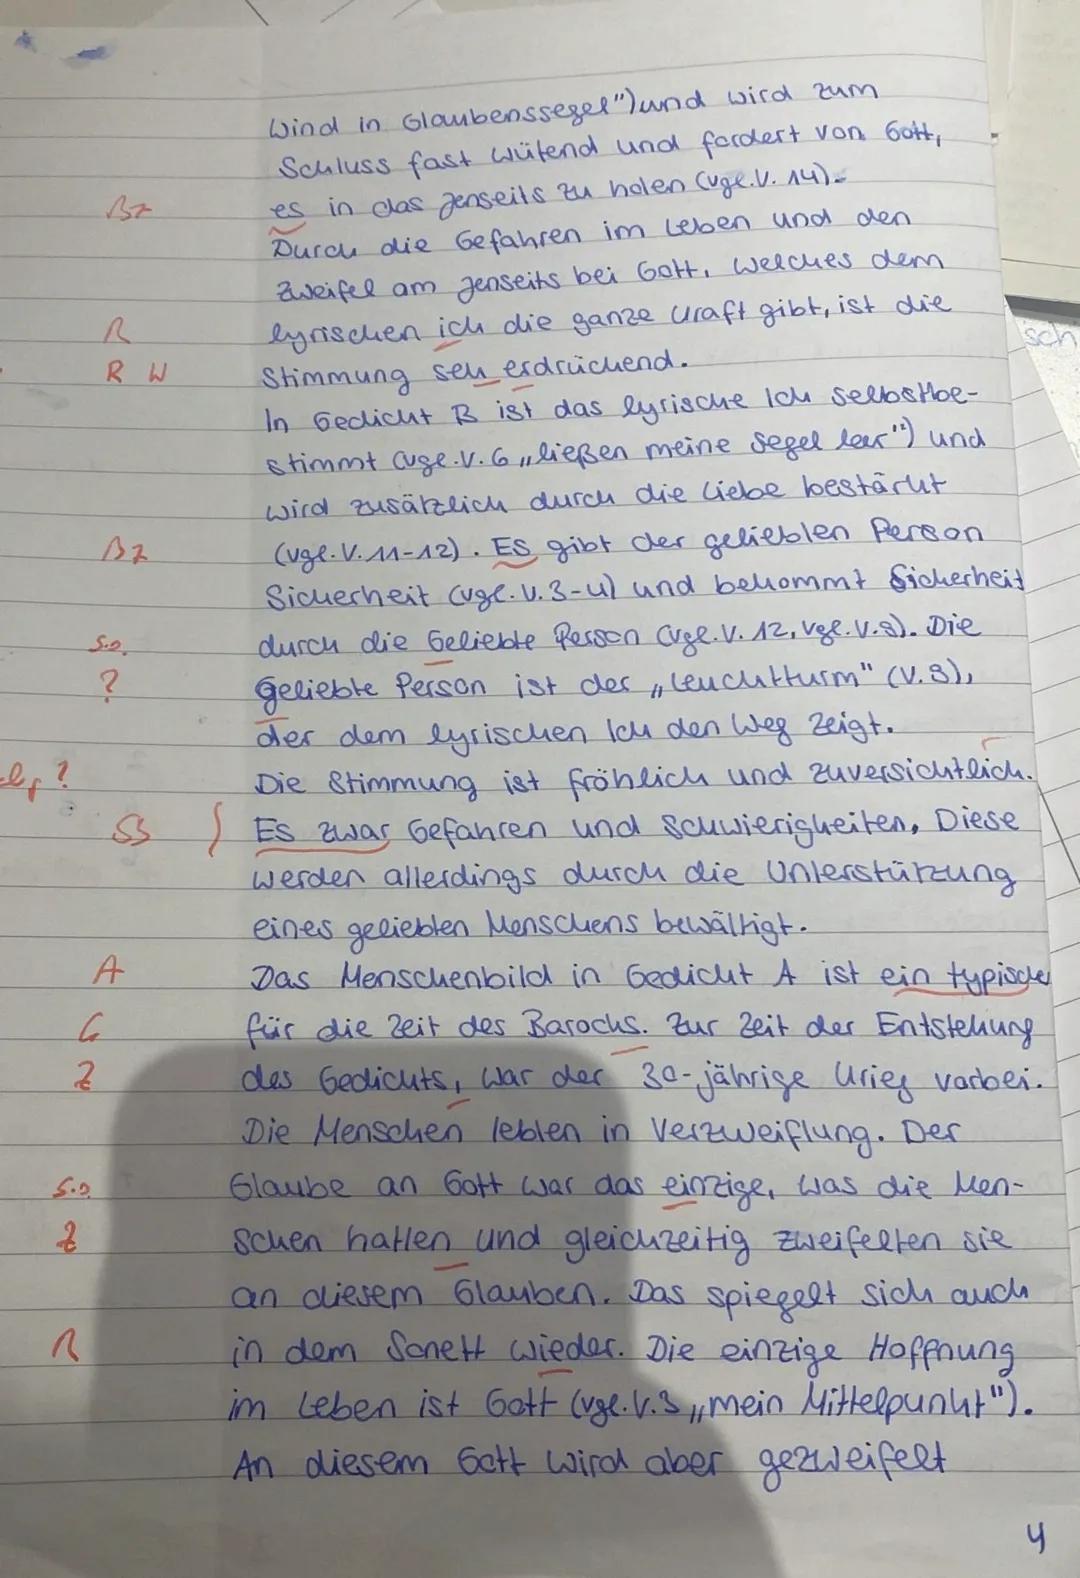 Wind in Glaubenssegel") und wird zum
Schluss fast wütend und fordert von Gott,
Bz es in das Jenseits zu holen (vgl. V. 14).
Durch die Gefahren im Leben und den
Zweifel am Jenseits bei Gott, welches dem
R lyrischen ich die ganze Kraft gibt, ist die
R W Stimmung seh erdrückend.
In Gedicht B ist das lyrische Ich selbstbe-
stimmt (vgl. V. 6 „ließen meine Segel leer") und
wird zusätzlich durch die Liebe bestärkt
Bz (vgl. V. 11-12). Es gibt der geliebten Person
Sicherheit (vgl. V. 3-4) und bekommt Sicherheit
s.o. durch die Geliebte Person (vgl. V. 12, vgl. V. 8). Die
? Geliebte Person ist der „Leuchtturm" (V. 8),
der dem lyrischen Ich den Weg zeigt.
? Die Stimmung ist fröhlich und zuversichtlich. Γ
SB Es zwar Gefahren und Schwierigkeiten, Diese
werden allerdings durch die Unterstützung
eines geliebten Menschens bewältigt.
A Das Menschenbild in Gedicht A ist ein typische
G für die Zeit des Barocks. Zur Zeit der Entstehung
Z des Gedichts, war der 30-jährige Krieg vorbei.
Die Menschen lebten in Verzweiflung. Der
s.o. Glaube an Gott war das einzige, was die Men-
Z schen hatten und gleichzeitig zweifelten sie
an diesem Glauben. Das spiegelt sich auch
R in dem Sonett wieder. Die einzige Hoffnung
im Leben ist Gott (vgl. V. 3 „mein Mittelpunkt").
An diesem Gott wird aber gezweifelt
4
sch